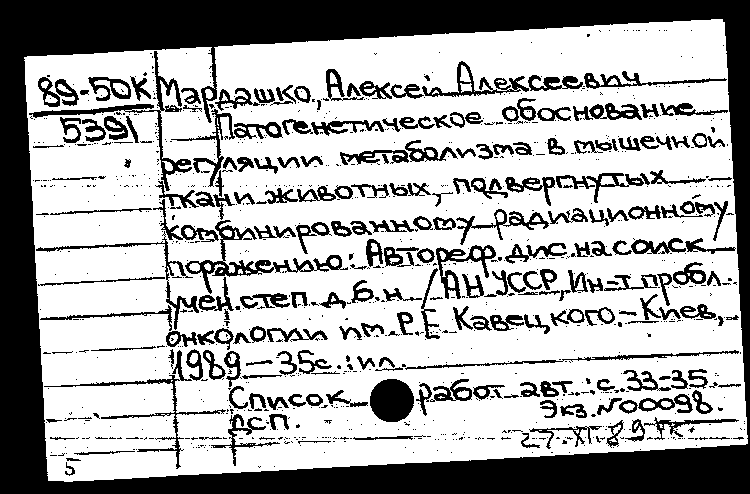 89-50К Мардашко, Алексей Алексеевич
5391 Патогенетическое обоснование
регуляции метаболизма в мышечной
ткани животных, подвергнутых
комбинированному радиационному
поражению: Автореф. дис. на соиск.
учен. степ. д. б. н. / АН УССР, Ин-т пробл.
онкологии им. Р.Е Кавецкого. - Киев,
1989 - 35с.: ил.
Список работ авт.: с. 33-35.
ДСП. Экз. №00098.
27.XI.89
5